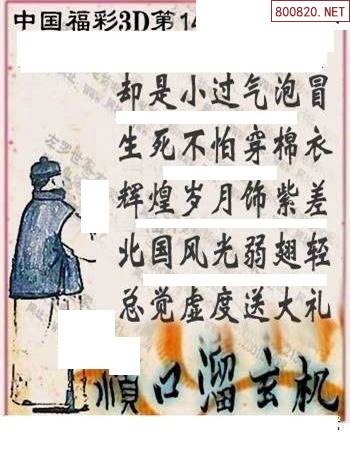 800820.NET
中国福彩3D第14
却是小过气泡冒
生死不怕穿棉衣
辉煌岁月饰紫差
北国风光弱翅轻
总觉虚度送大礼
顺口溜玄机